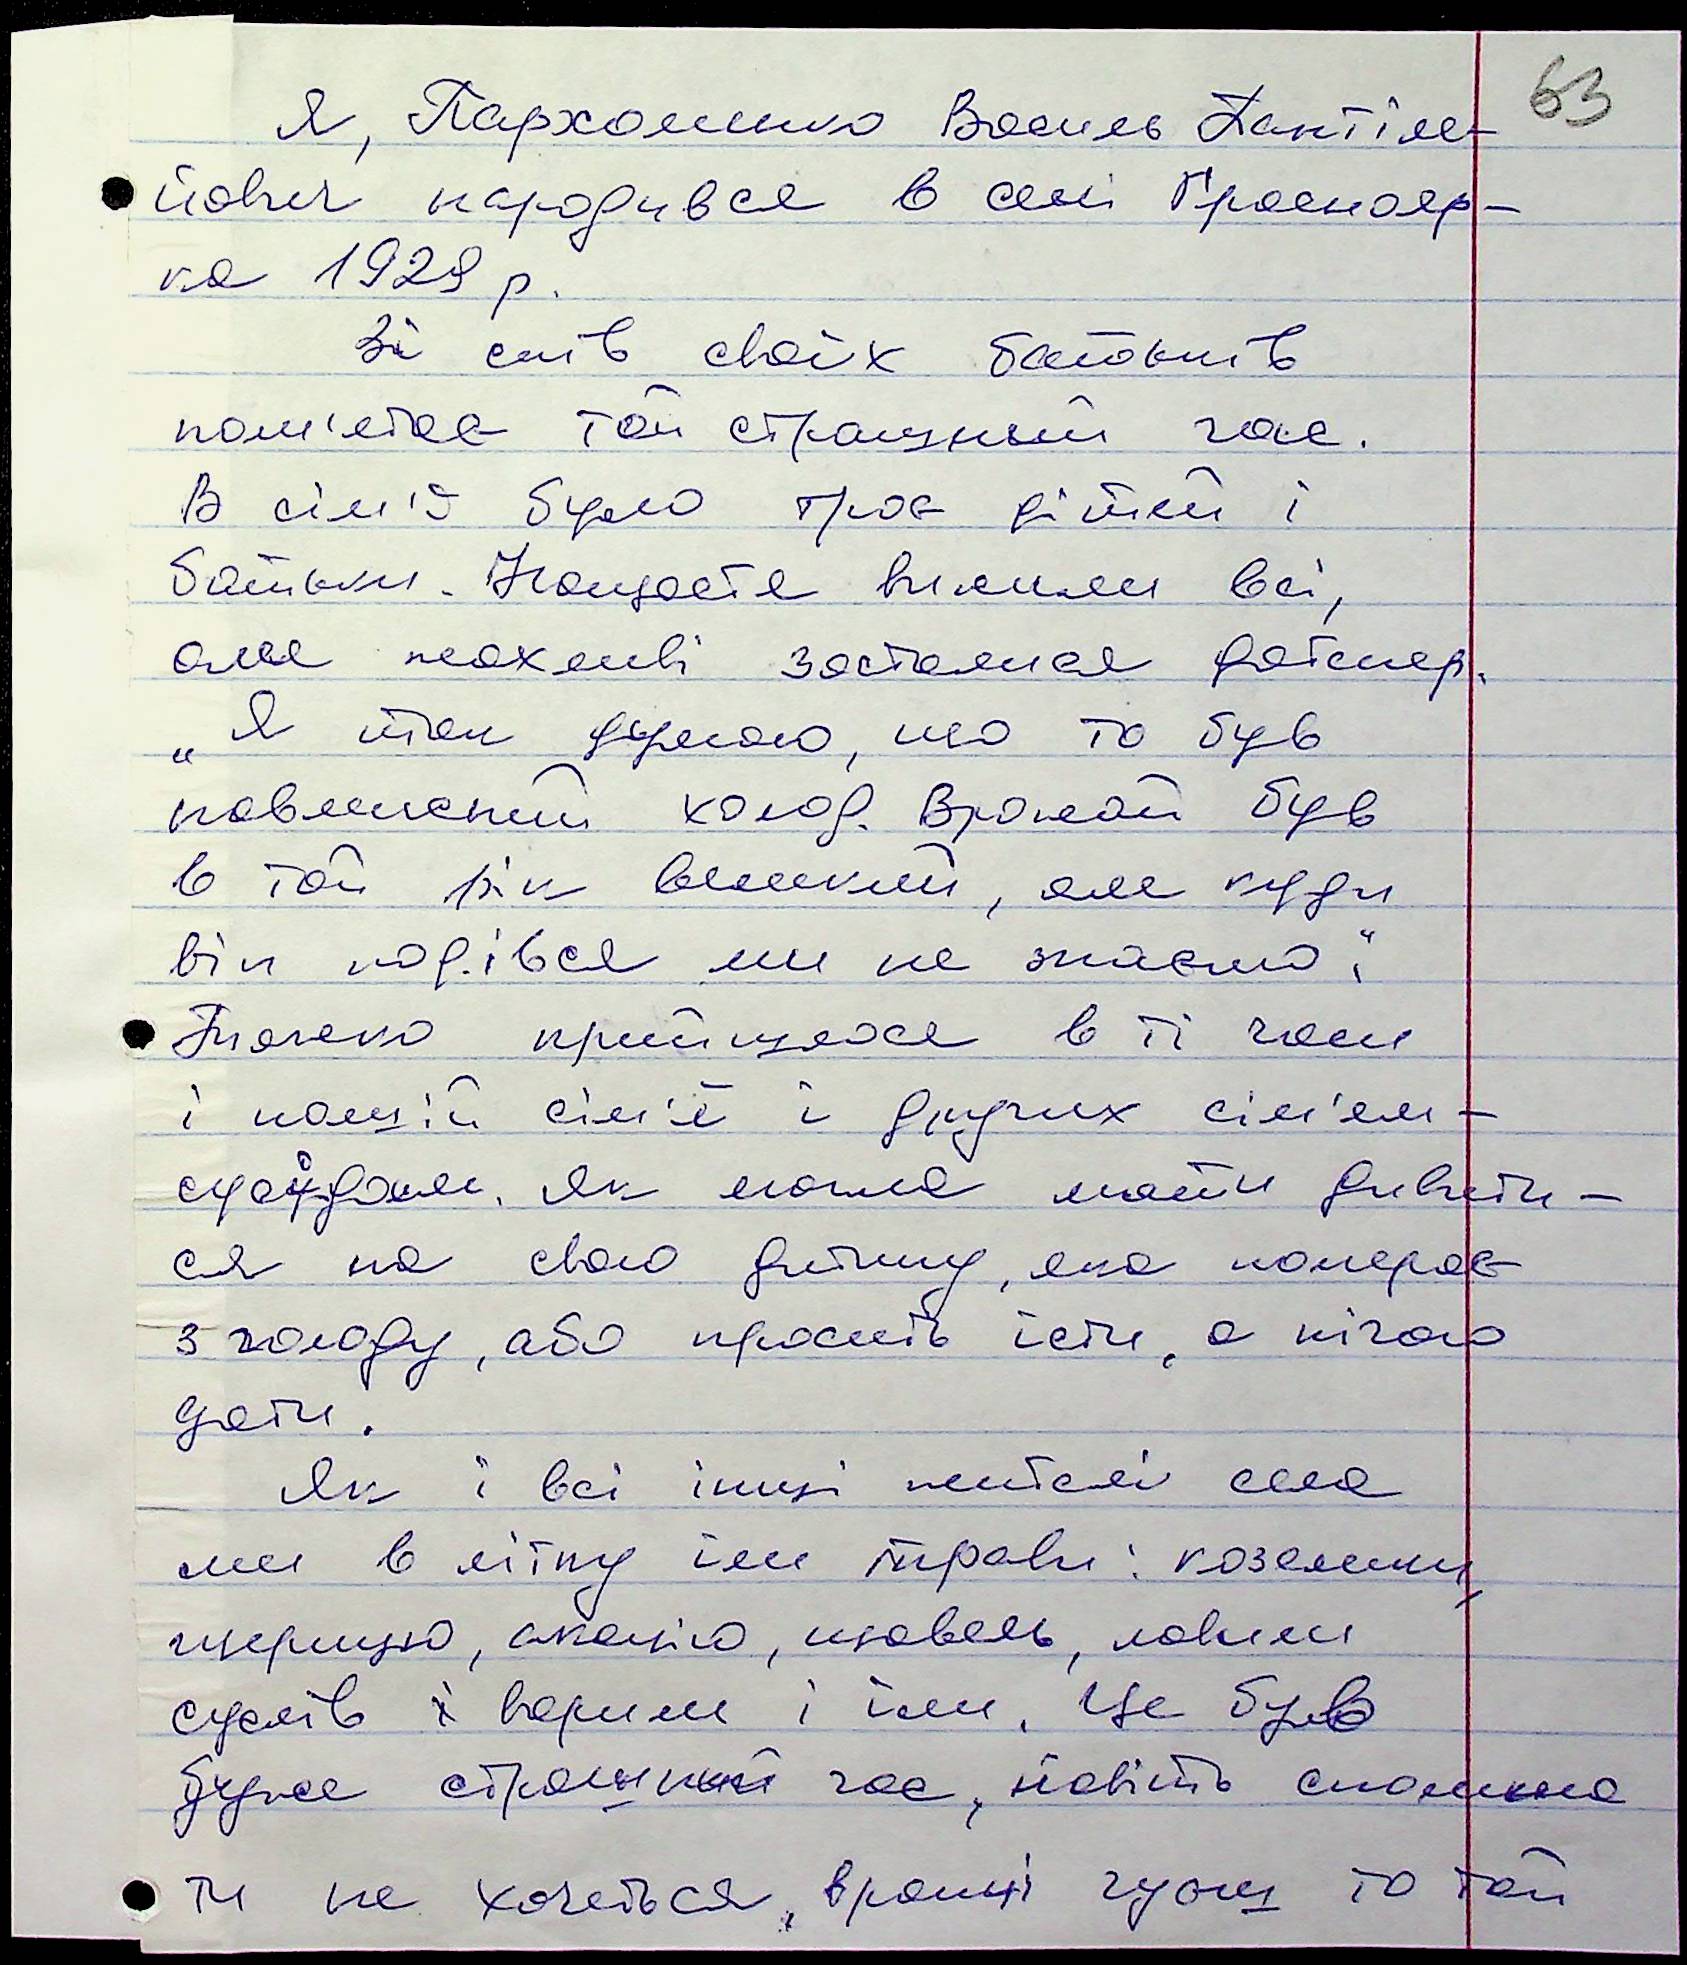 63
Я, Пархоменко Василь Пантіле-
йович народився в селі Граснояр-
ка 1929 р.
Зі слів своїх батьків
пам'ятає той страшний час.
В сім'ї було троє дітей і
батьки. Нащастя вижили всі,
але жахливі зосталися дотепер.
„Я так думаю, що то був
навмисний холод. Врожай був
в той рік великий, але куди
він подівся ми не знаємо“.
Тяжко прийшлося в ті часи
і нашій сім'ї і других сім'ям-
сусідам. Як могла мати дивити-
ся на свою дитину, яка померає
з голоду, або просить їсти, а нічого
дати.
Як і всі інші жителі села
ми в літку їли трави: козелики,
щерицю, акацію, щавель, ловили
суслів і варили і їли. Це був
дуже страшний час, навіть спомина
ти не хочеться, вранці чуєш то той